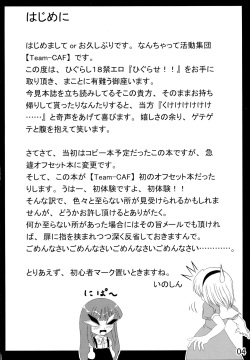 はじめに
はじめまして or お久しぶりです。なんちゃって活動集団
【Team-CAF】です。
この度は、ひぐらし18禁エロ『ひぐらせ！！』をお手に
取り下さり、まことに有難う御座います。
今見本誌を立ち読みしてるそこの貴方、そのままお持ち
帰りして貰ったりなんたりすると、当方『くけけけけけけ
……』と奇声をあげて喜びます。嬉しさの余り、ゲテゲ
テと腹を抱えて笑います。
さてさて、当初はコピー本予定だったこの本ですが、急
遽オフセット本に変更です。
そして、この本が【Team-CAF】初のオフセット本だった
りします。えぇ、初体験ですよ、初体験！！
そんな訳で、色々と至らない所が見受けられるかもしれま
せんが、どうかお許し頂けるとありがたく。
何か至らない所があった場合はその旨メールでも頂けれ
ば、扉に指を挟まれつつ深く反省しておきますので。
ごめんなさいごめんなさいごめんなさいごめんなさい……。
とりあえず、初心者マーク置いときますね。
いのしん
にぱ～
04